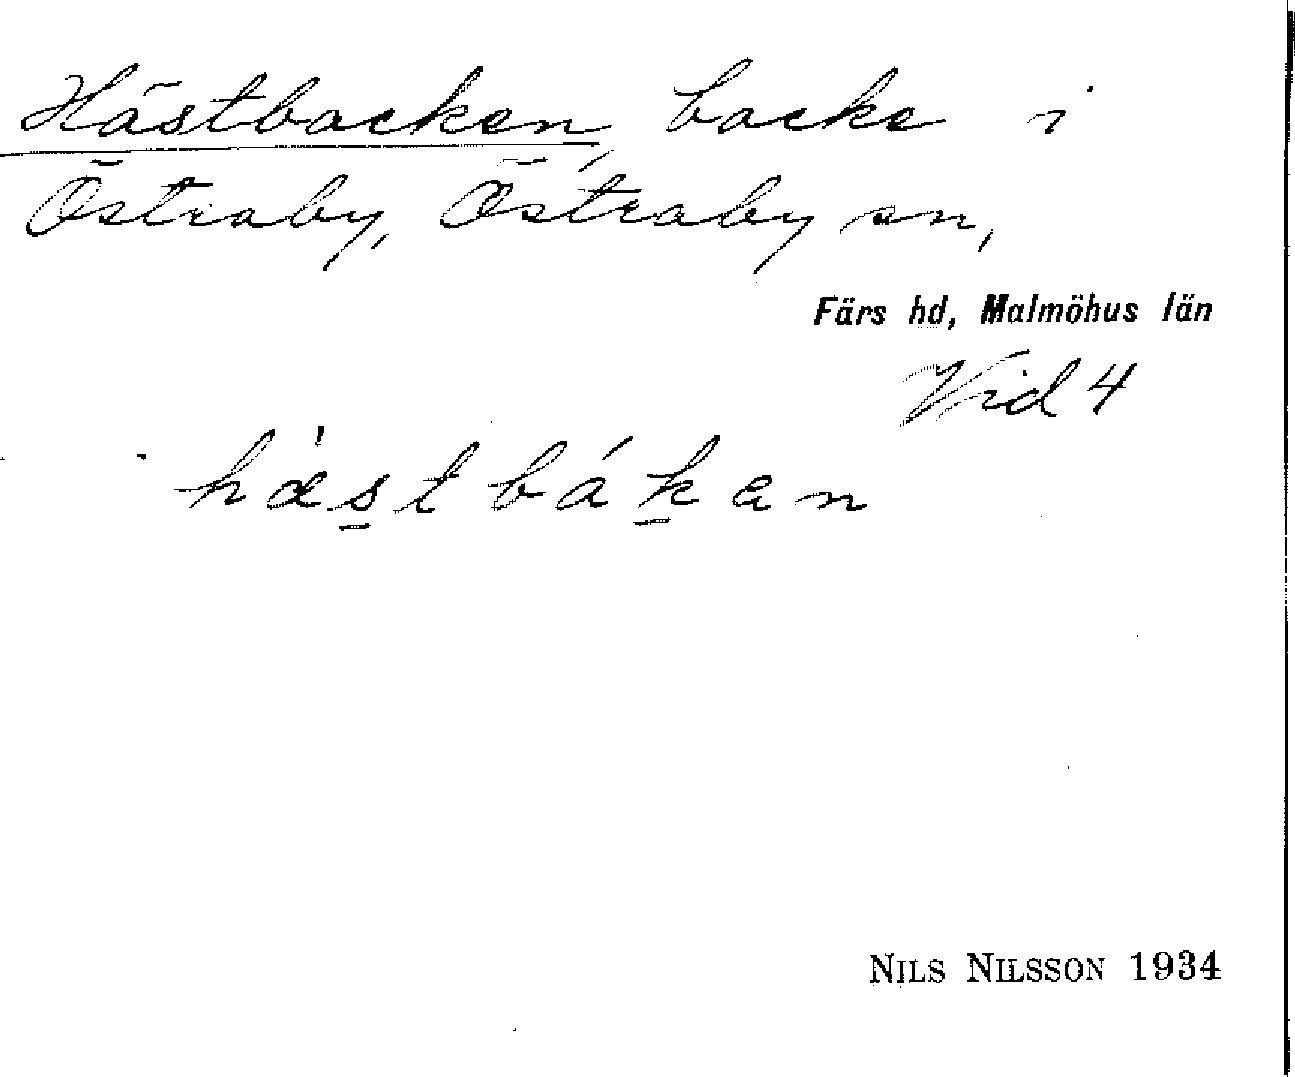 Hästbacken, backe i
Östraby, Östraby sn,
Färs hd, Malmöhus län
Vid 4
hæ̀stbákan
NILS NILSSON 1934